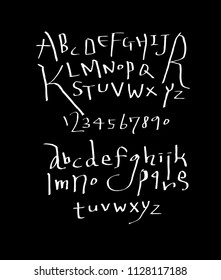 ABCDEFGHIJ
KLMNOPQR
STUVWXYZ
1234567890
abcdefghijk
lmnopqrs
tuvwxyz
shutterstock.com · 1128117188